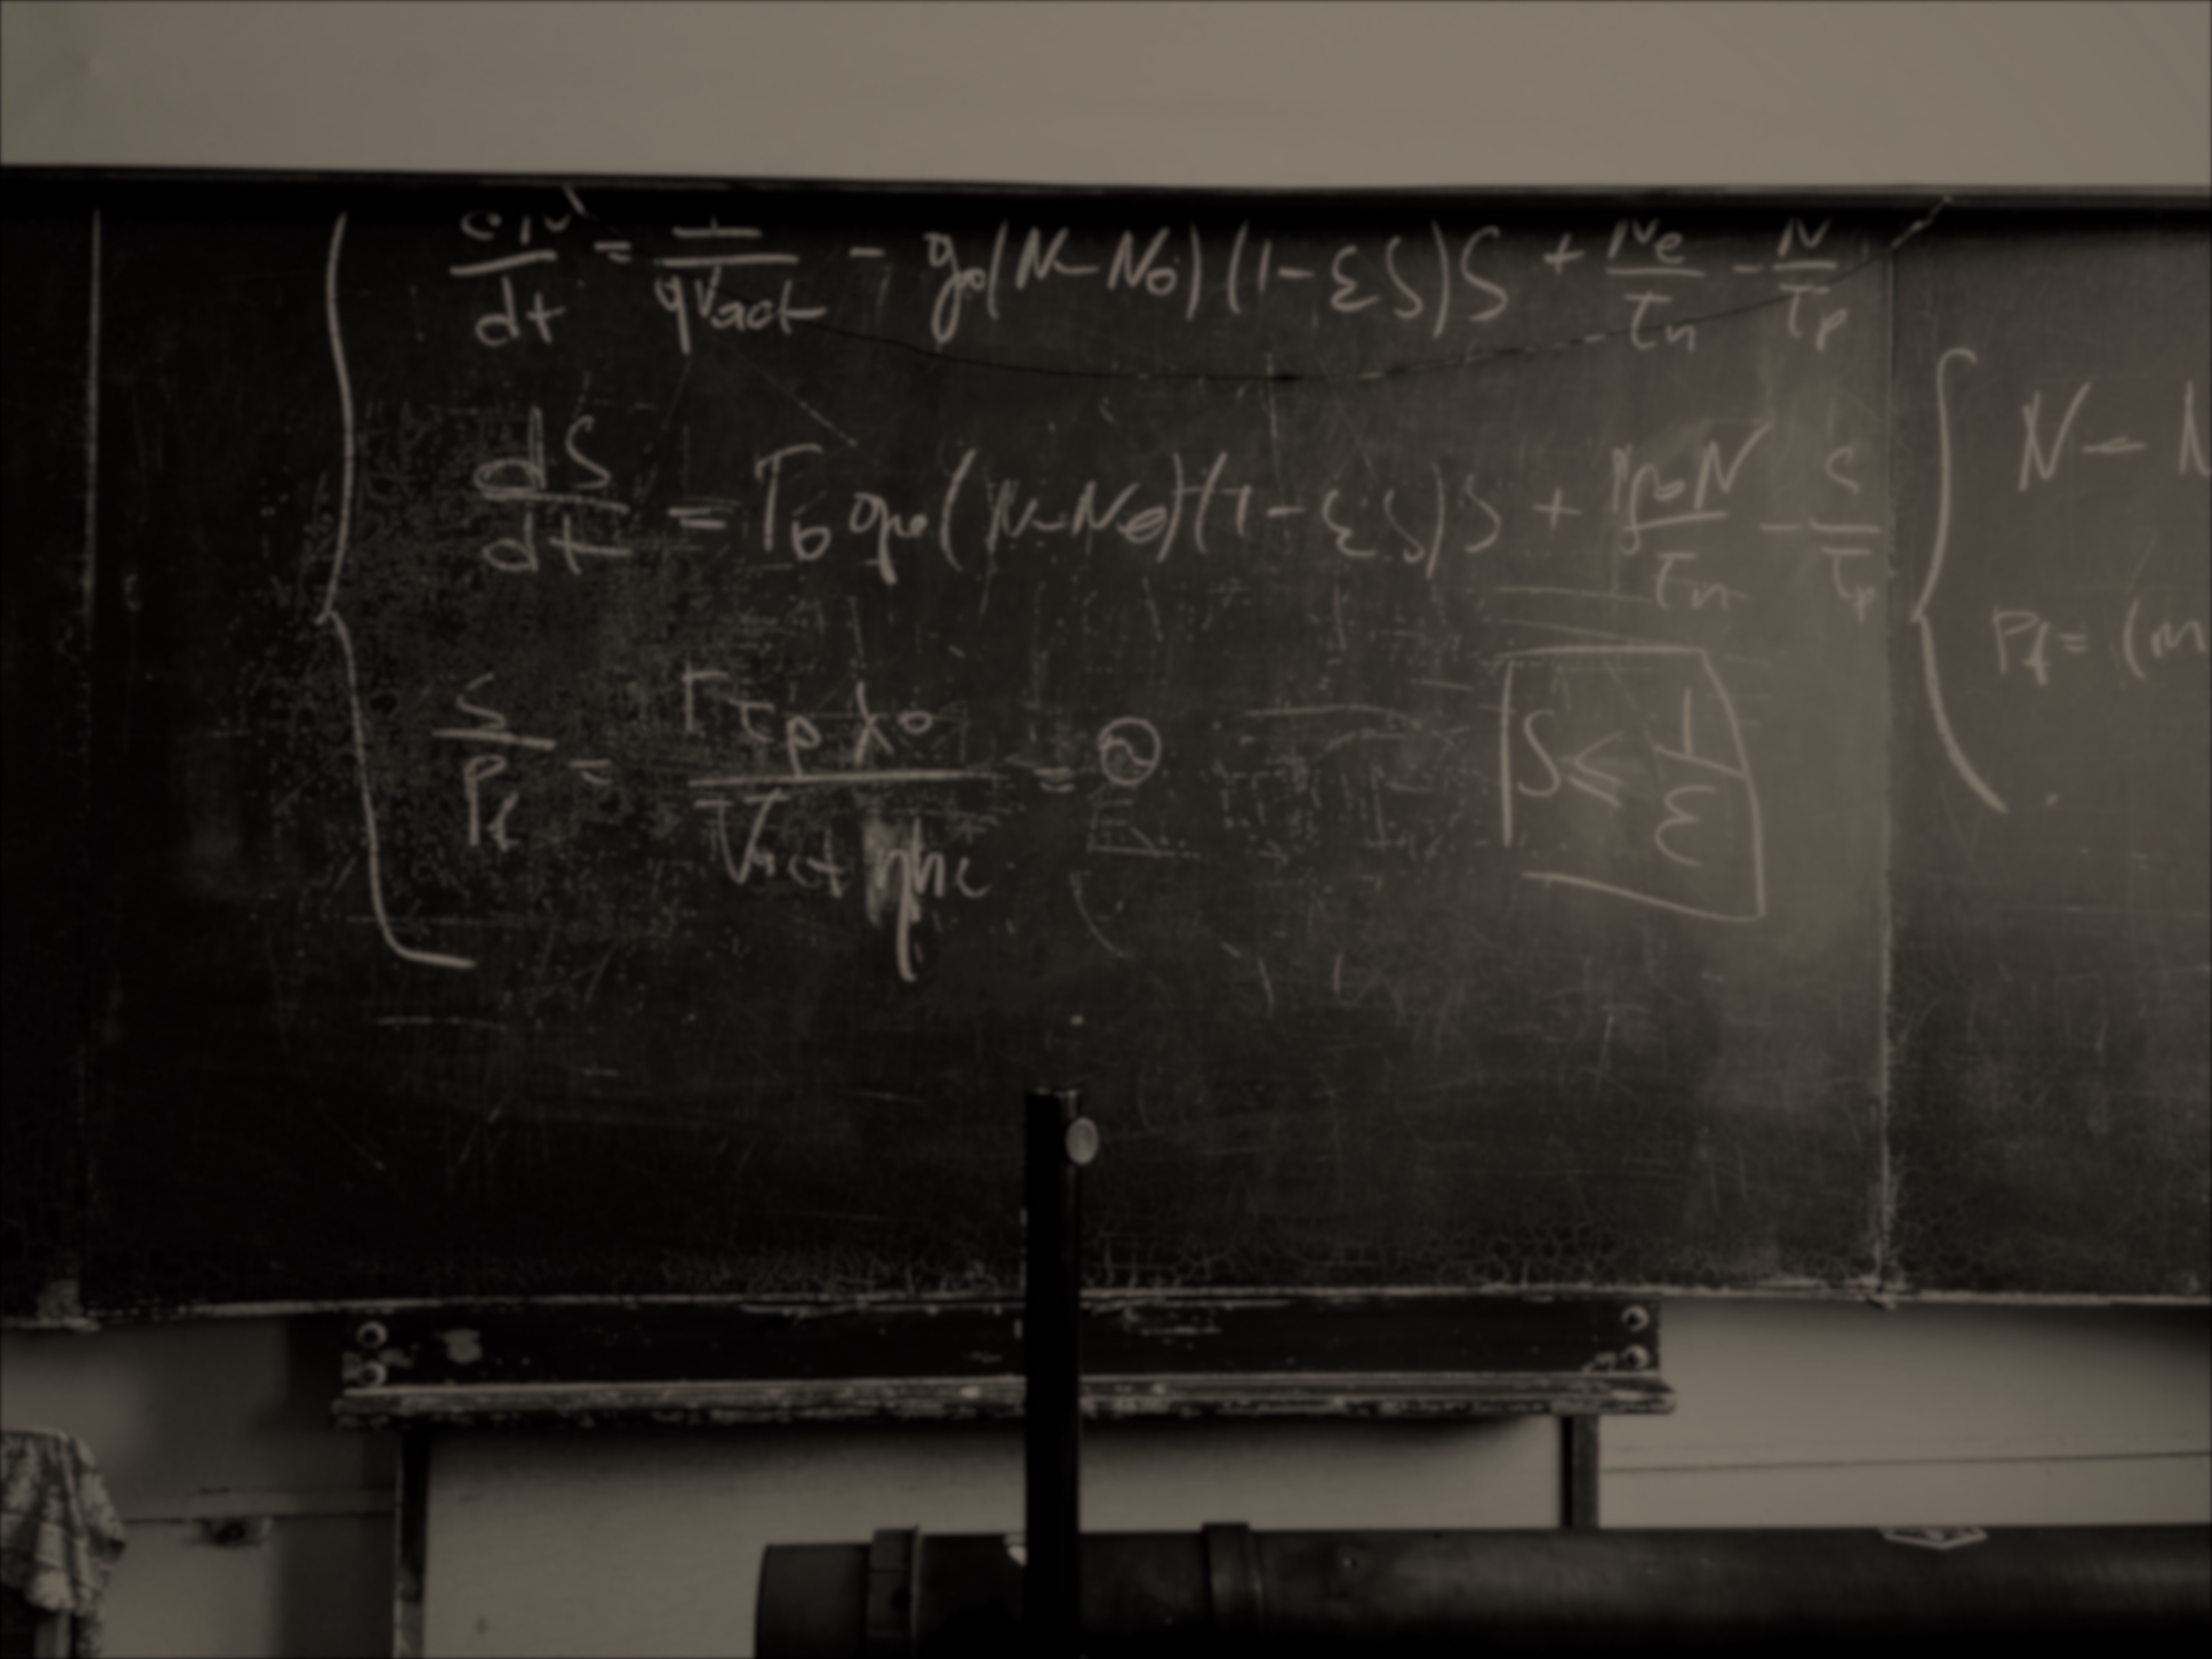 dN/dt = I/qVact - g0(N-N0)(1-εS)S + Ne/τn - N/τp
dS/dt = Γ0 g0(N-N0)(1-εS)S + ΓβN/τn - S/τp
S/Pf = Γτpλ0/Vact ηhc = ②
S ≤ 1/ε
N -
Pf = (m